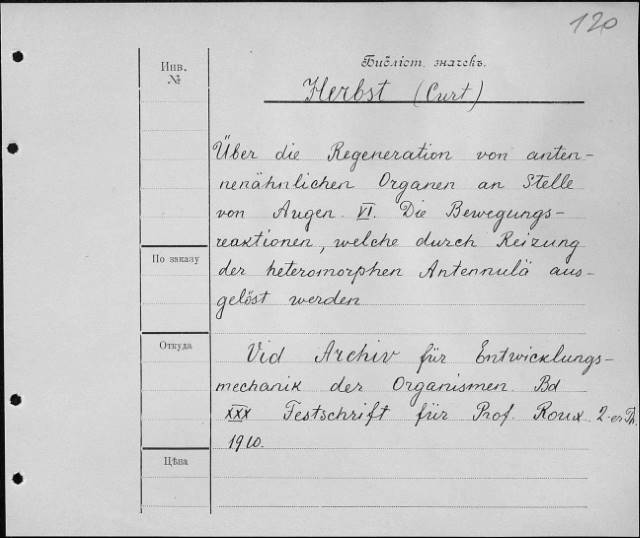 120
Инв.
№
Библіот. значекъ.
Herbst (Curt)
Über die Regeneration von anten-
nenähnlichen Organen an Stelle
von Augen VI. Die Bewegungs-
reaktionen, welche durch Reizung
der heteromorphen Antennulä aus-
gelöst werden
По заказу
Откуда
Vid Archiv für Entwicklungs-
mechanik der Organismen Bd
XXX Festschrift für Prof. Roux 2-er Th.
1910.
Цѣна